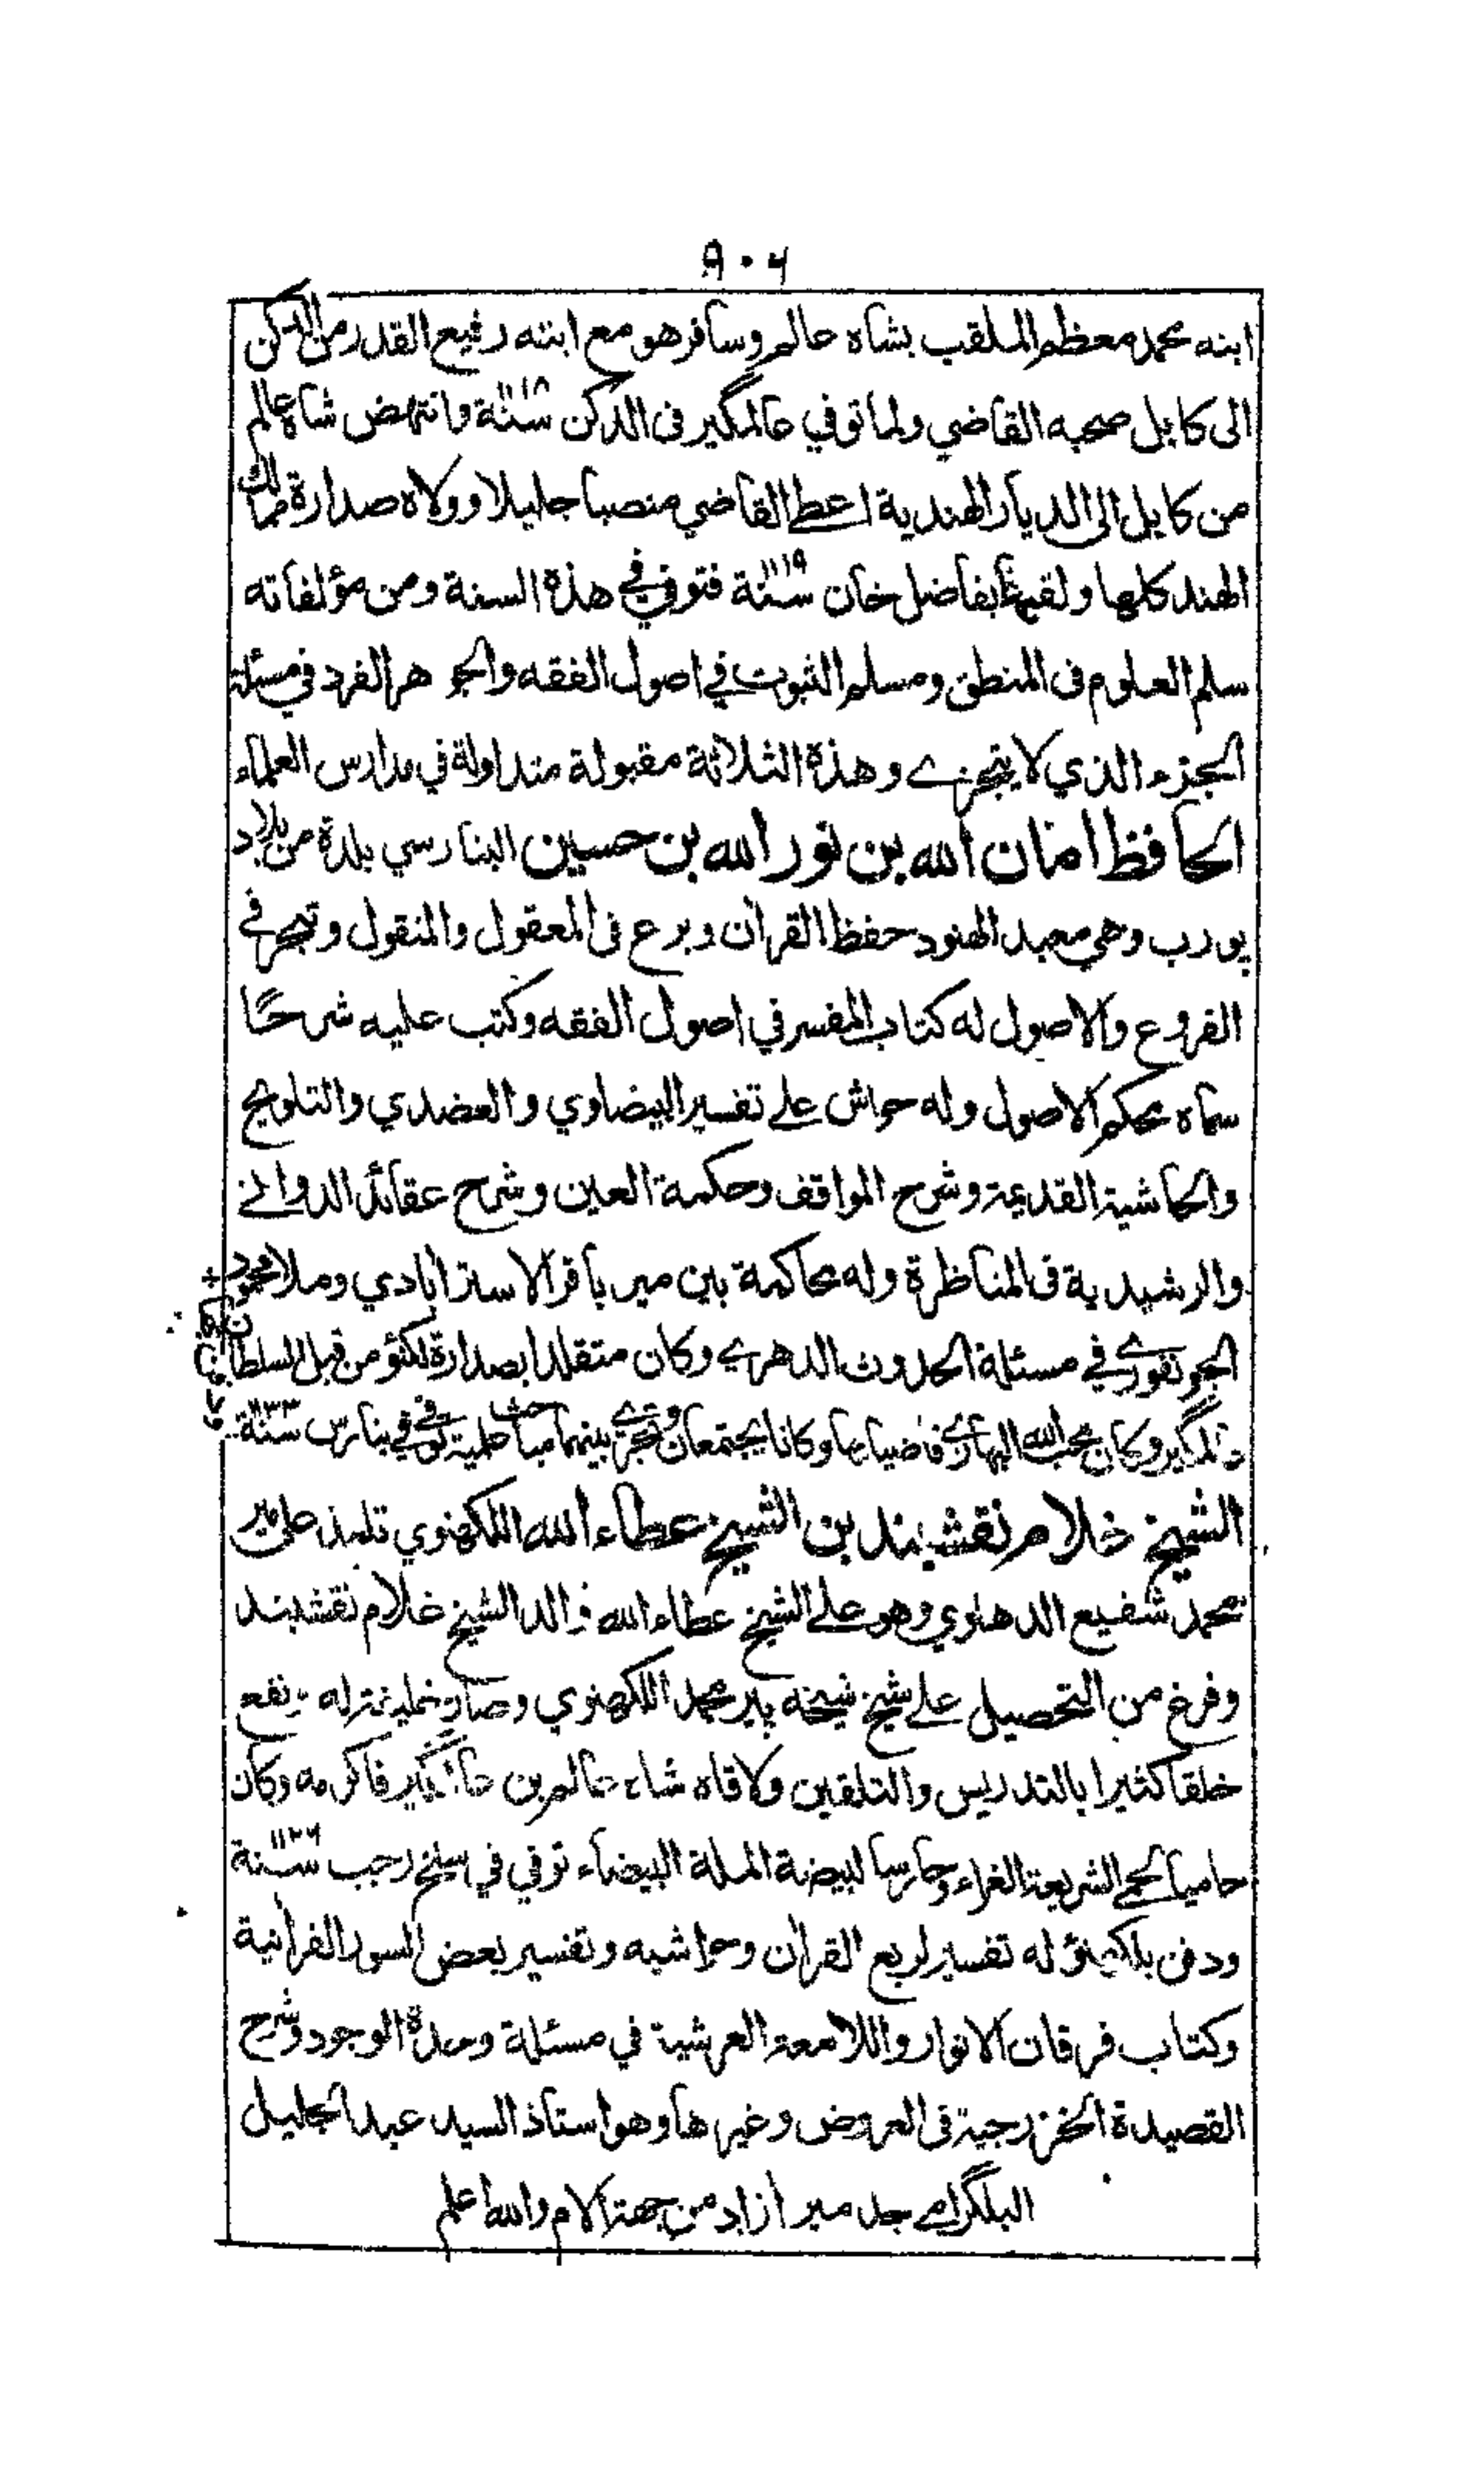 ٩٠٦
ابنه محمد معظم الملقب بشاه عالم وسافر هو مع ابنته رفيع القدر من الدكن
الى كابل صحبه القاضي ولما توفي عالمگير فى الدكن سنة ١١١٨ وانتهض شاه عالم
من كابل الى الديار الهندية اعطے القاضي منصبا جليلا وولاه صدارة ممالك
الهند كلها ولقبه بفاضل خان سنة ١١١٩ فتوفي في هذه السنة ومن مؤلفاته
سلم العلوم فى المنطق ومسلم الثبوت في اصول الفقه والجوهر الفرد في مسئلة
الجزء الذي لا يتجزے وهذه الثلاثة مقبولة متداولة في مدارس العلماء
الحافظ امان الله بن نور الله بن حسين البنارسي بلدة من بلاد
پورب وهي معبد الهنود حفظ القران وبرع فى المعقول والمنقول وتبحر في
الفروع والاصول له كتاب المفسر في اصول الفقه وكتب عليه شرحًا
سماه محكم الاصول وله حواش علے تفسير البيضاوي والعضدي والتلويح
والحاشية القديمة وشرح المواقف وحكمة العين وشرح عقائد الدوانے
والرشيدية فى المناظرة وله محاكمة بين مير باقر الاستراٰبادي وملا محمود
الجونفورے في مسئلة الحدوث الدهرے وكان متقلدا بصدارة لكنؤ من قبل السلطان
عالمگير وكان محب الله البهارے قاضيا بها وكانا يجتمعان وتجرے بينهما مباحث علمية توفي في بنارس سنة ١١٣٣
الشيخ غلام نقشبند بن الشيخ عطاء الله اللكهنوي تلمذ على مير
محمد شفيع الدهلوي وهو علے الشيخ عطاء الله والد الشيخ غلام نقشبند
وفرغ من التحصيل علے شيخ شيخه پير محمد اللكهنوي وصار خليفة له ونفع
خلقا كثيرا بالتدريس والتلقين ولاقاه شاه عالم بن عالمگير فاكرمه وكان
حاميا لحمے الشريعة الغراء وحارسا لبيضة الملة البيضاء توفي في سلخ رجب سنة ١١٢٦
ودفن بلكهنؤ له تفسير لربع القران وحواشيه وتفسير بعض السور القرانية
وكتاب فرقان الانوار واللامعة العرشية في مسئلة وحدة الوجود وشرح
القصيدة الخزرجية فى العروض وغيرها وهو استاذ السيد عبد الجليل
البلگرامے جد مير ازاد من جهة الام والله اعلم